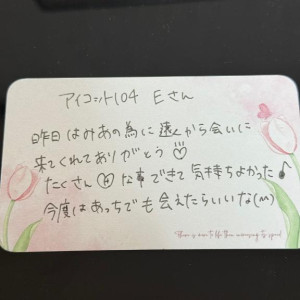 アイコット104 Eさん
昨日はみあの為に遠くから会いに
来てくれてありがとう♡
たくさんⒽな事できて気持ちよかった♪
今度はあっちでも会えたらいいな(m)
There is more to life than increasing its speed.